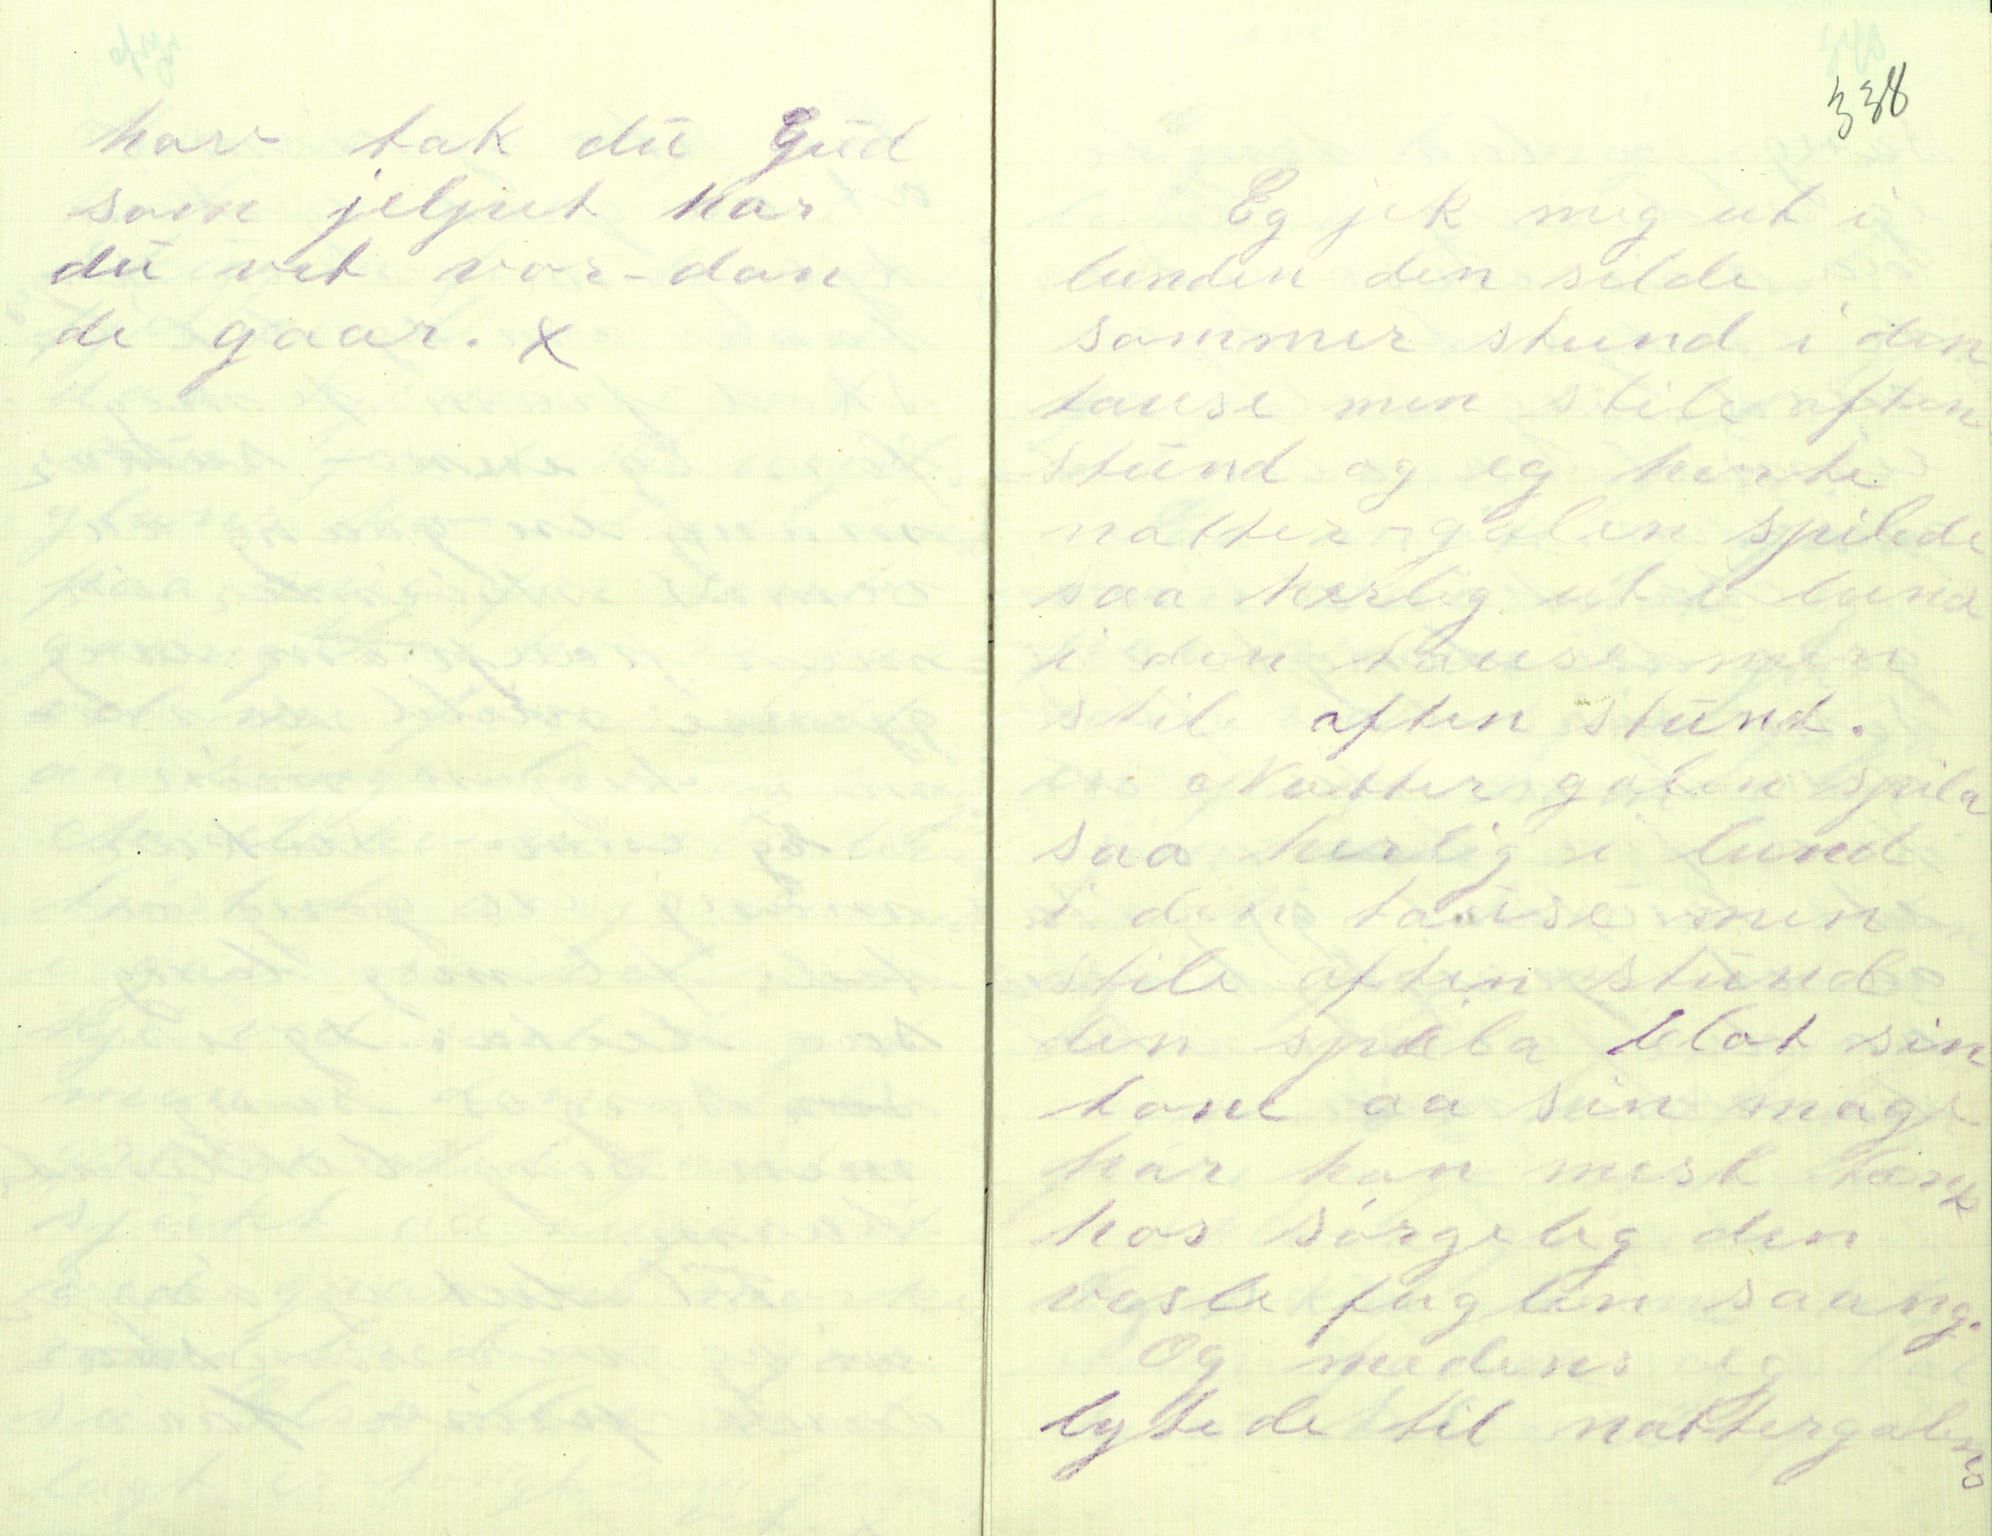 har tak dū Gūd
som jelput har
dū vet vor-dan
de gaar. x
338
Eg jek mig ut i
lunden den silde
sommer stund i den
tause men stile aften
stūnd og eg herte
natter-galen spilede
saa herlig ut i lund
i den tause men
stile aften stūnd.
Nattergalen spila
saa herlig i lund
i den taūse men
stile aften stūnd
den spila blot sin
tone aa sin mage
har han mest tænk
hos sørgelig den
vesle fuglen saang.
Og medens eg
lytede til nattergalens